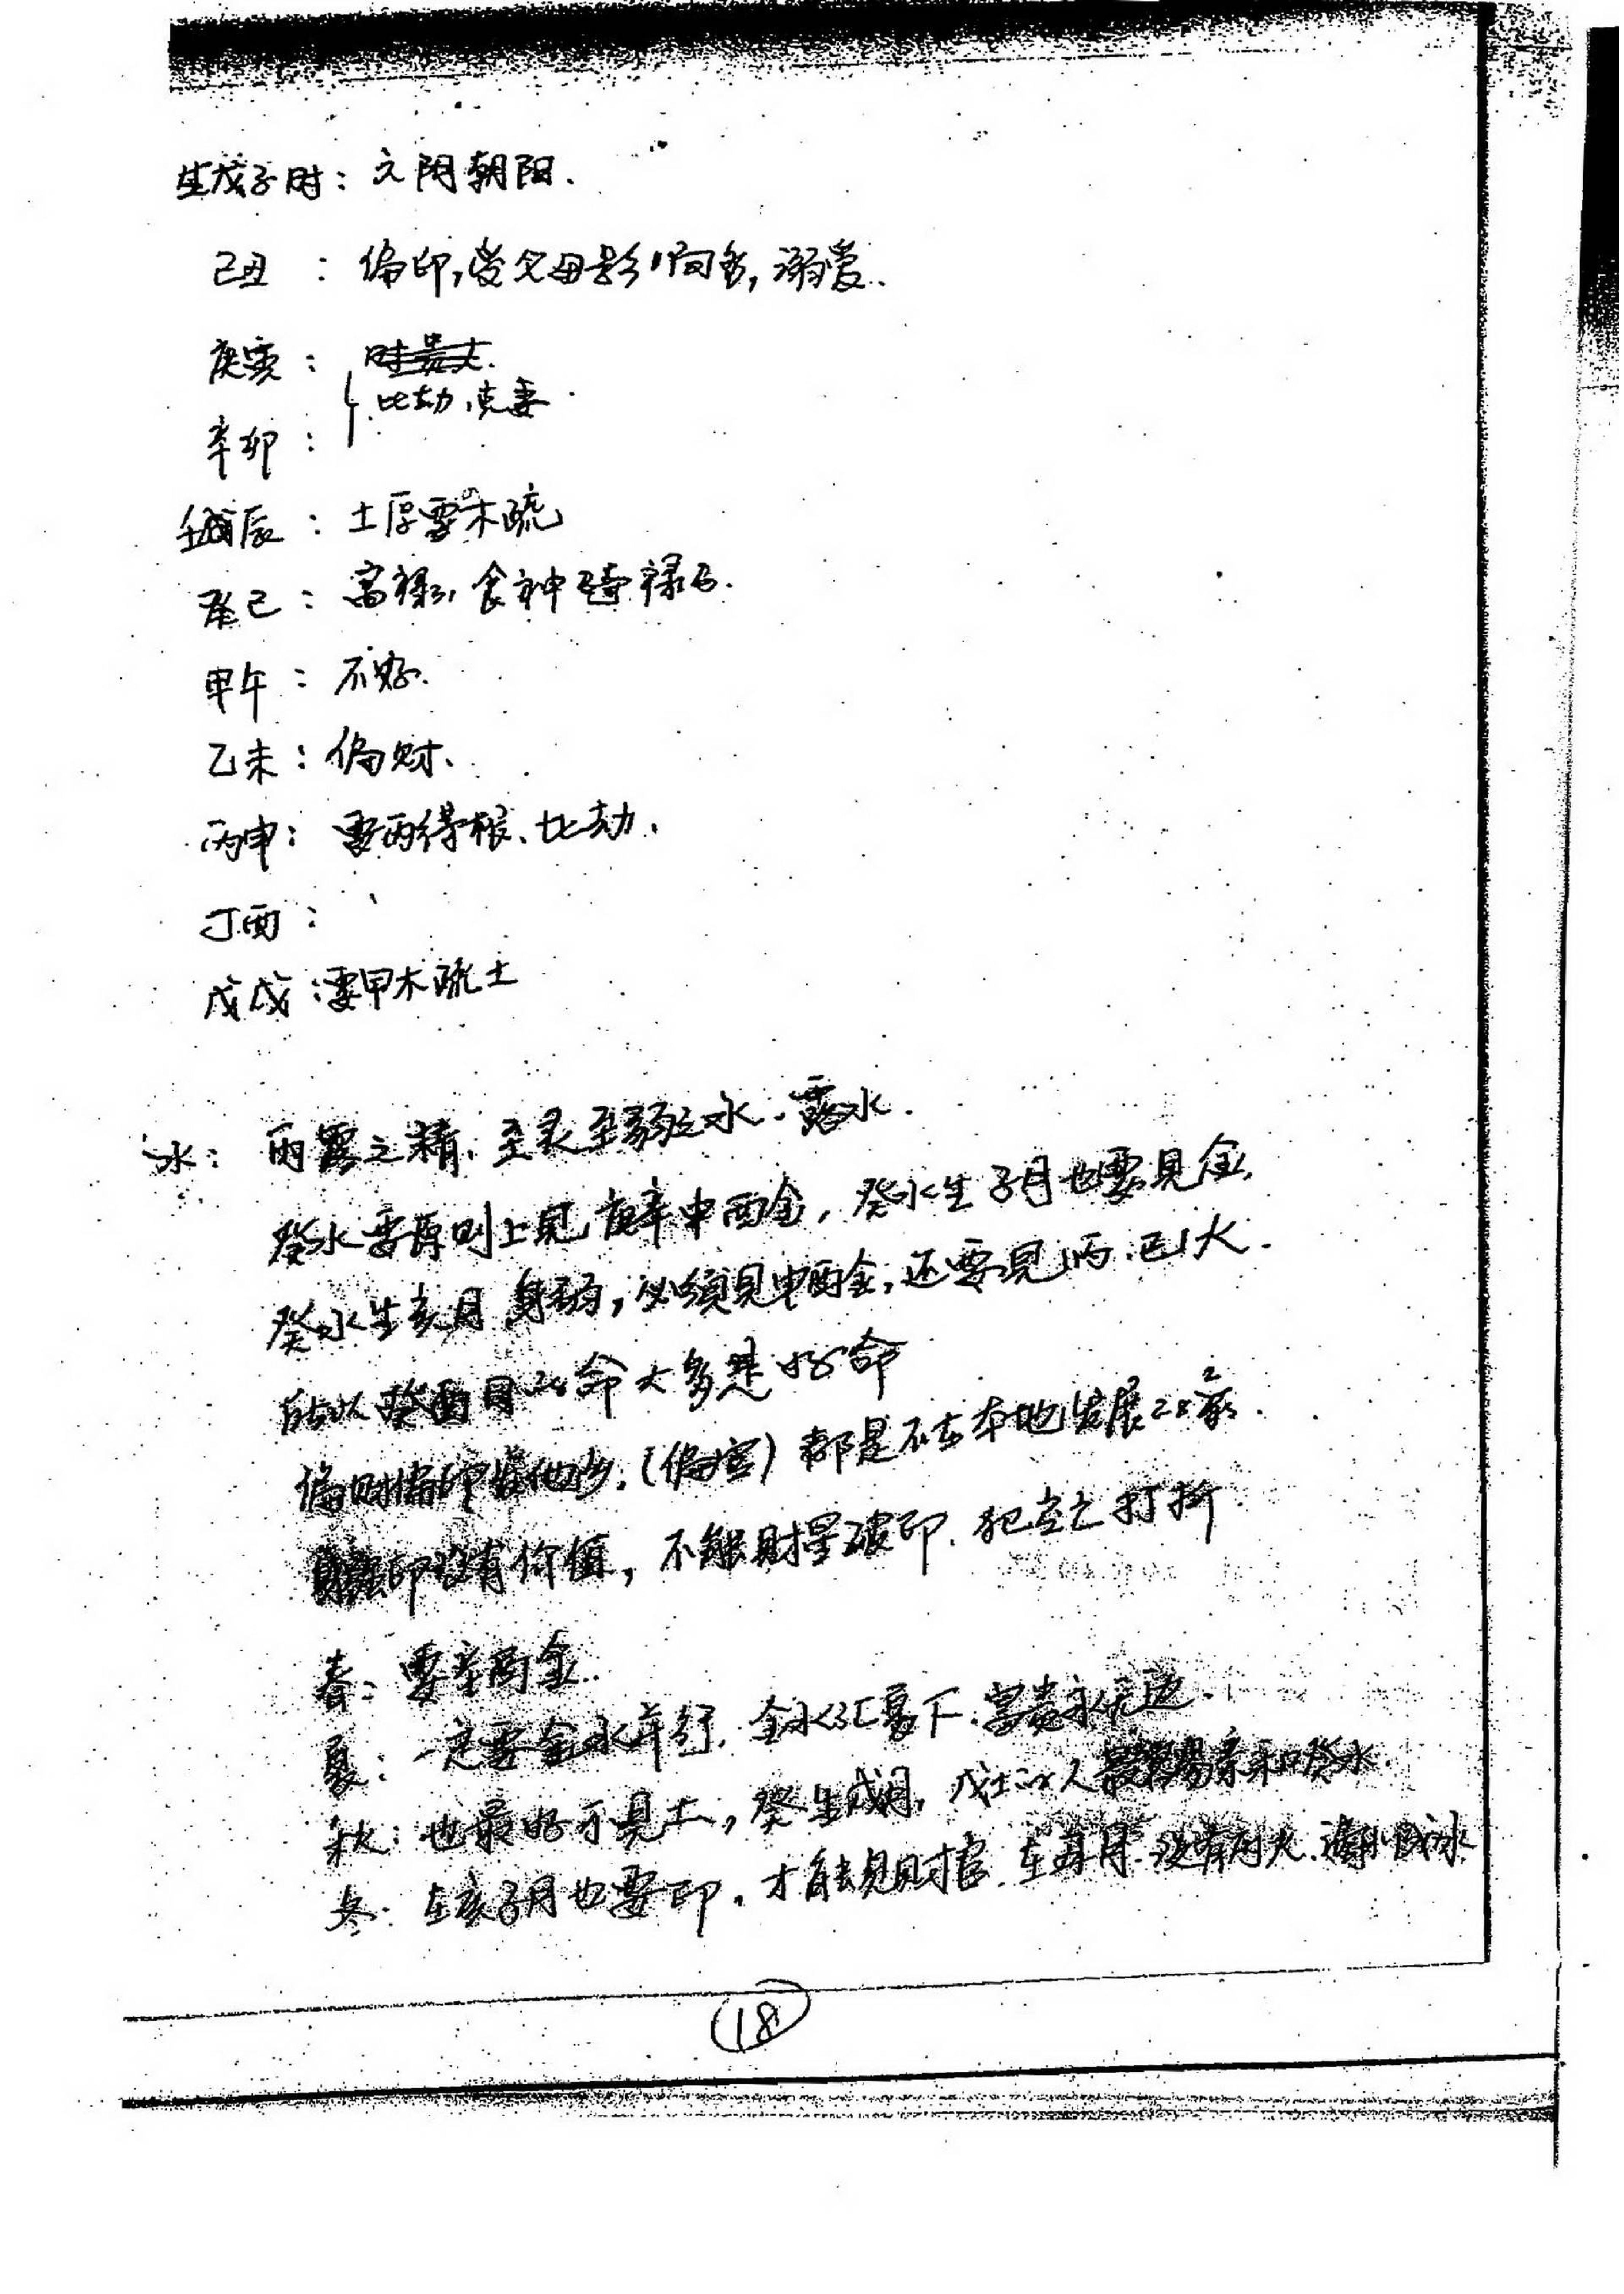 生戊子时：六阴朝阳.
己丑：偏印,受父母影响多,溺爱.
庚寅：
比劫,克妻.
辛卯：
壬辰：土厚需木疏
癸巳：高禄, 食神骑禄马.
甲午：不好.
乙未：偏财、
丙申：要丙得根、比劫.
丁酉：
戊戌：需甲木疏土
水：雨露之精.至灵至弱之水.露水.
癸水要原则上见庚辛申酉金,癸水生子月也要见金.
癸水生亥月身弱,必须见申酉金,还要见丙.巳火.
所以癸酉日的命大多是好命
偏财偏印 (偏官)都是不在本地发展
印没有价值,不能财星破印.犯空亡打折
春：要辛丙金.
夏：一定要金水并行.金水汇夏下.富贵永无边.
秋：也最好不见土,癸生戌月,戊土的人最容易亲和癸水.
冬：在亥子月也要印.才能见财官.在丑月.没有丙火.滴水成冰
18